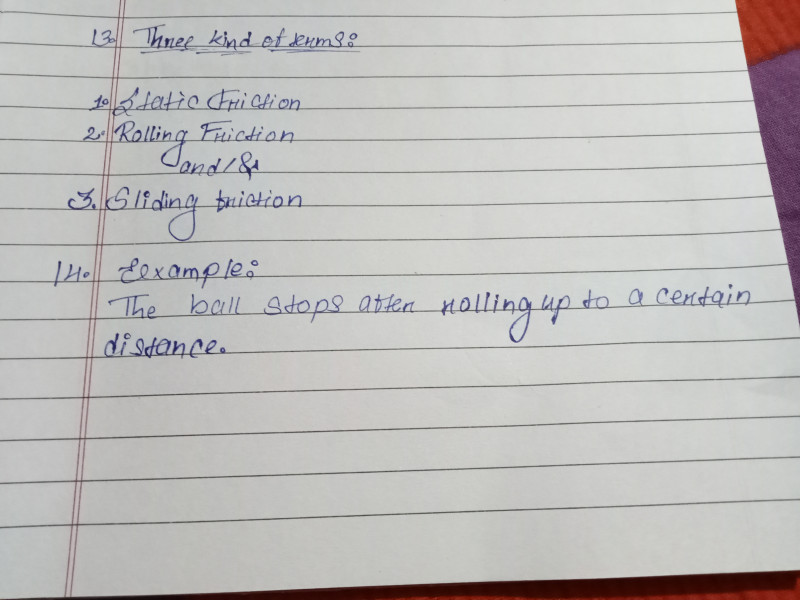 13. Three kind of terms:
1. Static Friction
2. Rolling Friction
and/&
3. Sliding friction
14. Example:
The ball stops after rolling up to a certain
distance.